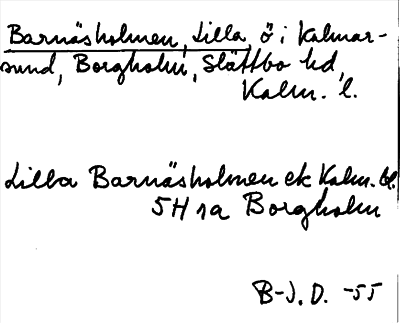 Barnäsholmen, Lilla, ö i Kalmar-
sund, Borgholm, Slättbo hd,
Kalm. l.
Lilla Barnäsholmen ek Kalm. bl.
5H 1a Borgholm
B-J. D. -55